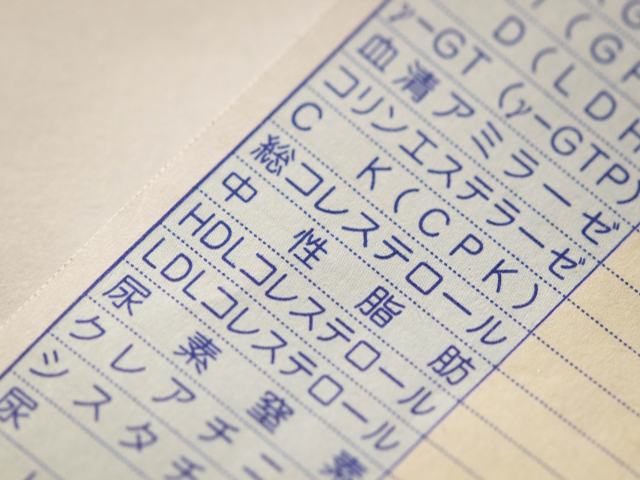 D(LDH
γ-GT(γ-GTP)
血清アミラーゼ
コリンエステラーゼ
CK(CPK)
総コレステロール
中性脂肪
HDLコレステロール
LDLコレステロール
尿素窒素
クレアチニ
シスタチ
尿